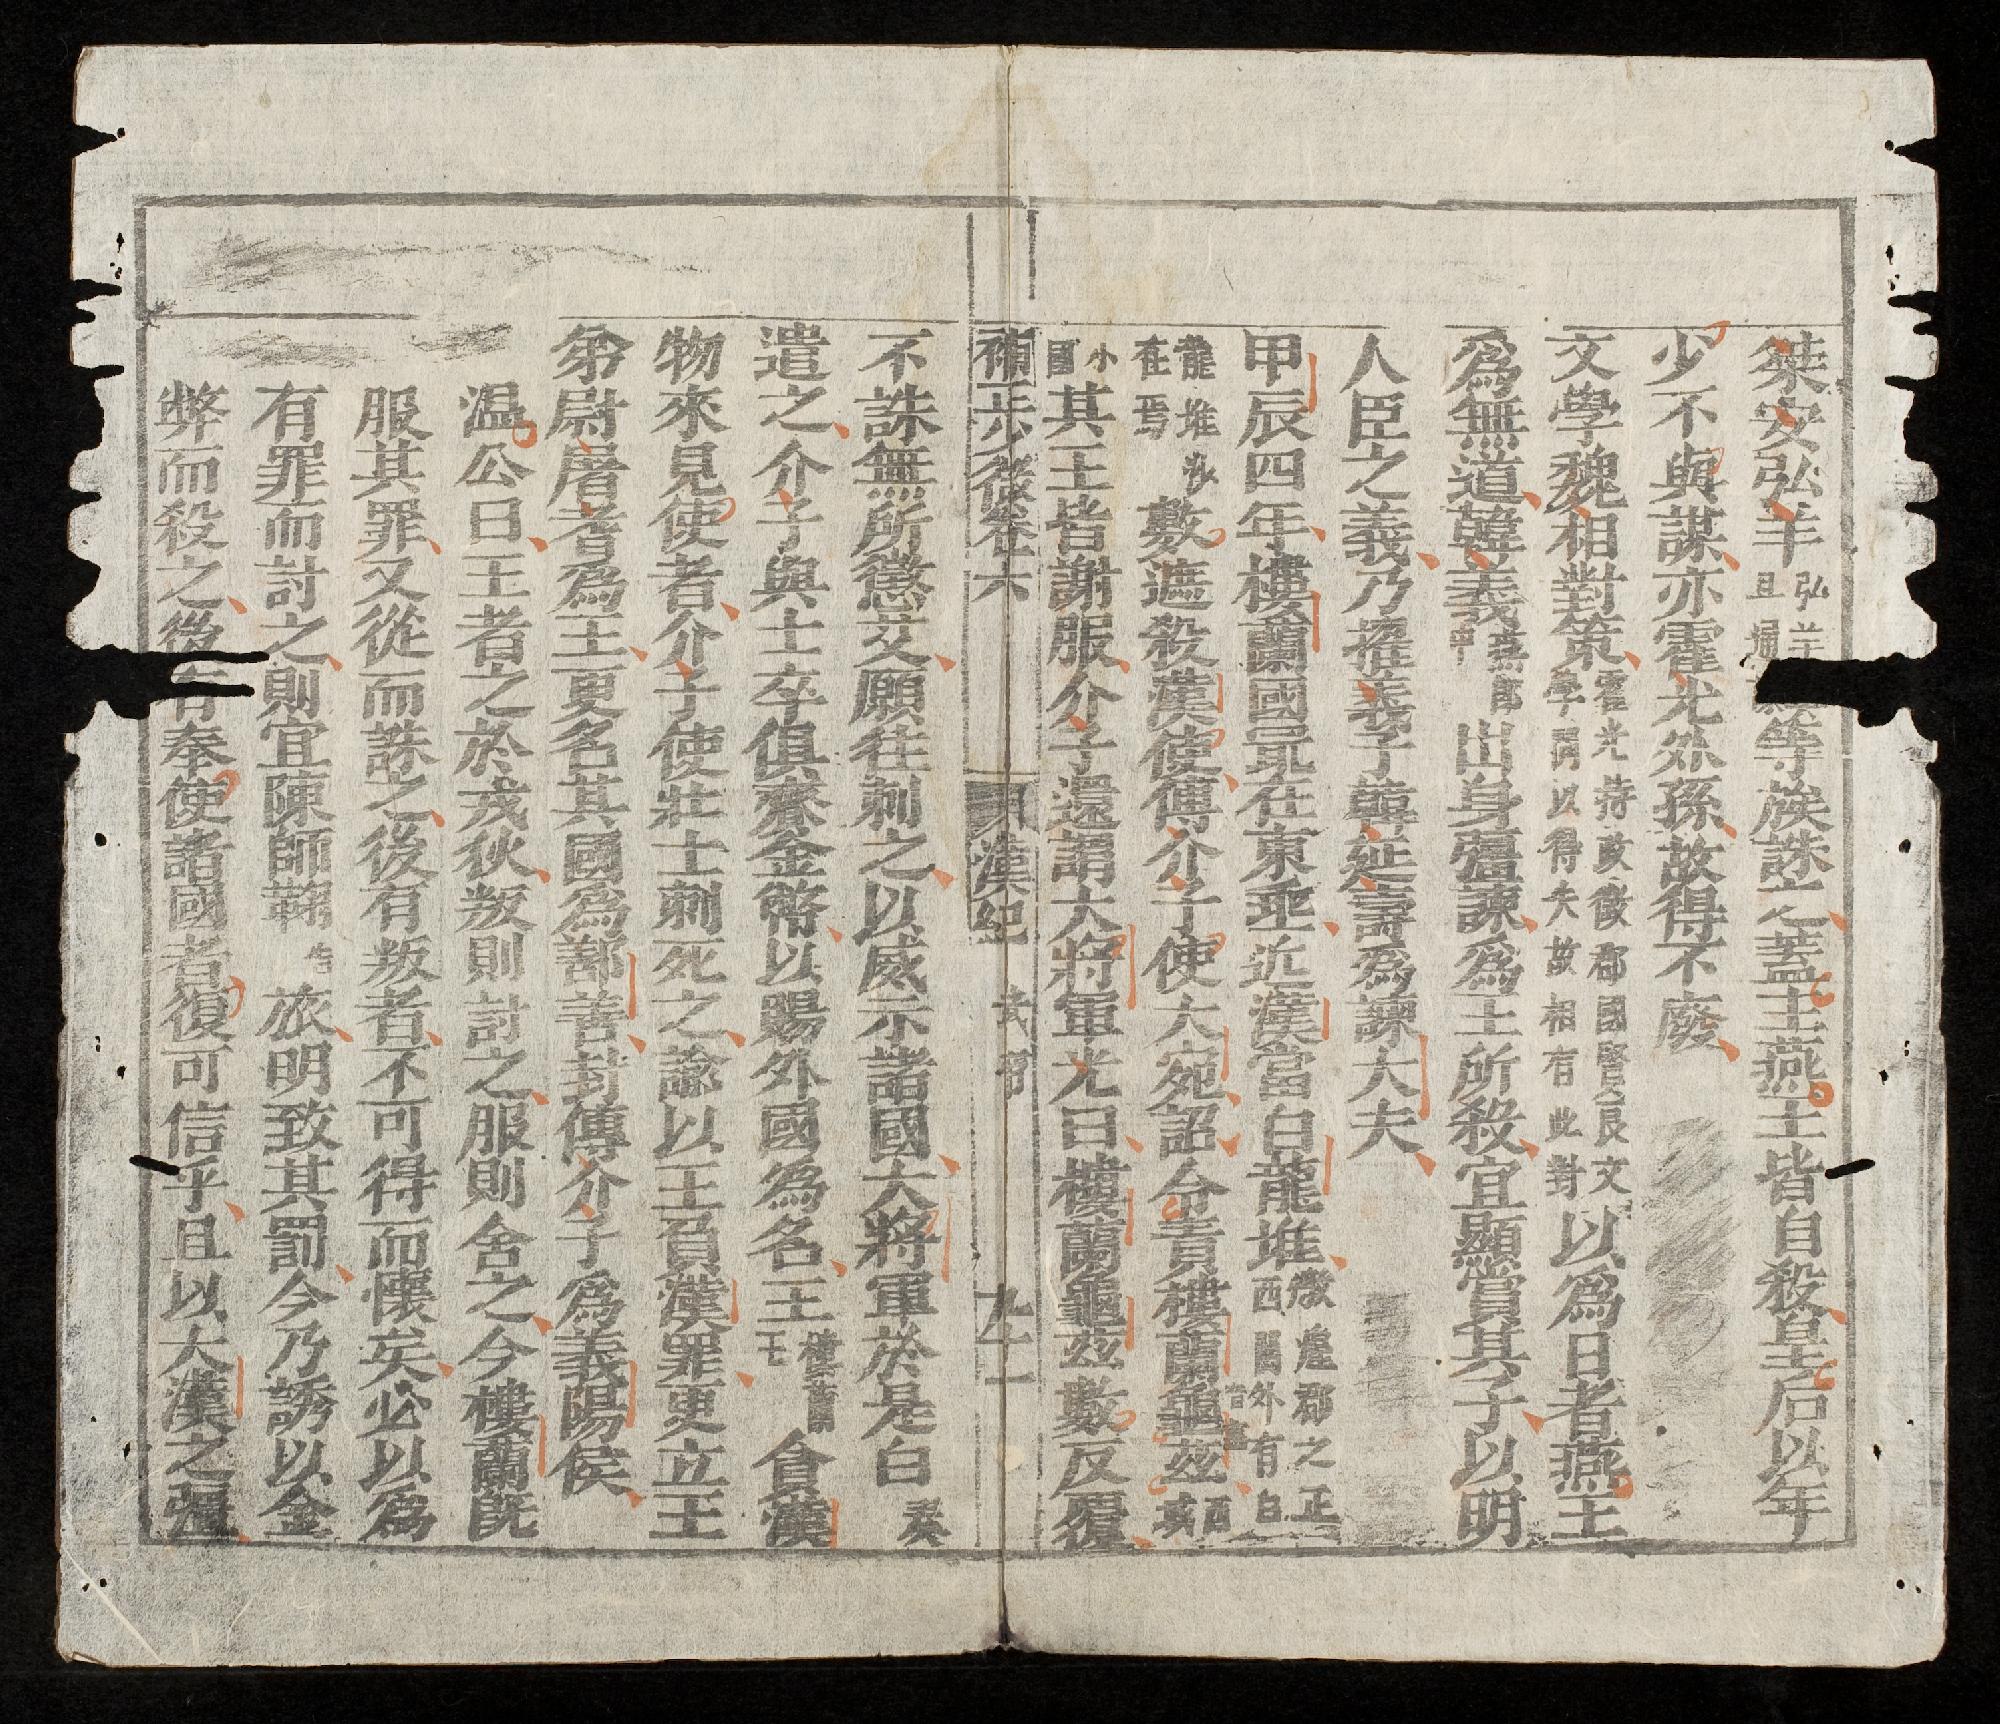 桀安弘羊弘羊且等族誅之蓋主燕王皆自殺皇后以年
少不與謀亦霍光外孫故得不廢
文學魏相對策霍光持政徵郡國賢良文學問以得失故相有此對以爲日者燕王
爲無道韓義燕郎中出身彊諫爲王所殺宜顯賞其子以明
人臣之義乃擢義子韓延壽爲諫大夫
甲辰四年樓蘭國最在東垂近漢當白龍堆燉煌郡之正西關外有白
龍堆沙在焉數遮殺漢使傅介子使大宛詔令責樓蘭龜茲西域
小國其王皆謝服介子還謂大將軍光曰樓蘭龜茲數反覆
鼎後卷六 漢紀 武昭 九十一
不誅無所懲艾願往刺之以威示諸國大將軍於是白奏
遣之介子與士卒俱齎金幣以賜外國爲名王樓蘭王貪漢
物來見使者介子使壯士刺死之諭以王負漢罪更立王
弟尉屠耆爲王更名其國爲鄯善封傅介子爲義陽侯
温公曰王者之於戎狄叛則討之服則舍之今樓蘭旣
服其罪又從而誅之後有叛者不可得而懷矣必以爲
有罪而討之則宜陳師鞠旅明致其罰今乃誘以金
弊而殺之後有奉使諸國者復可信乎且以大漢之彊